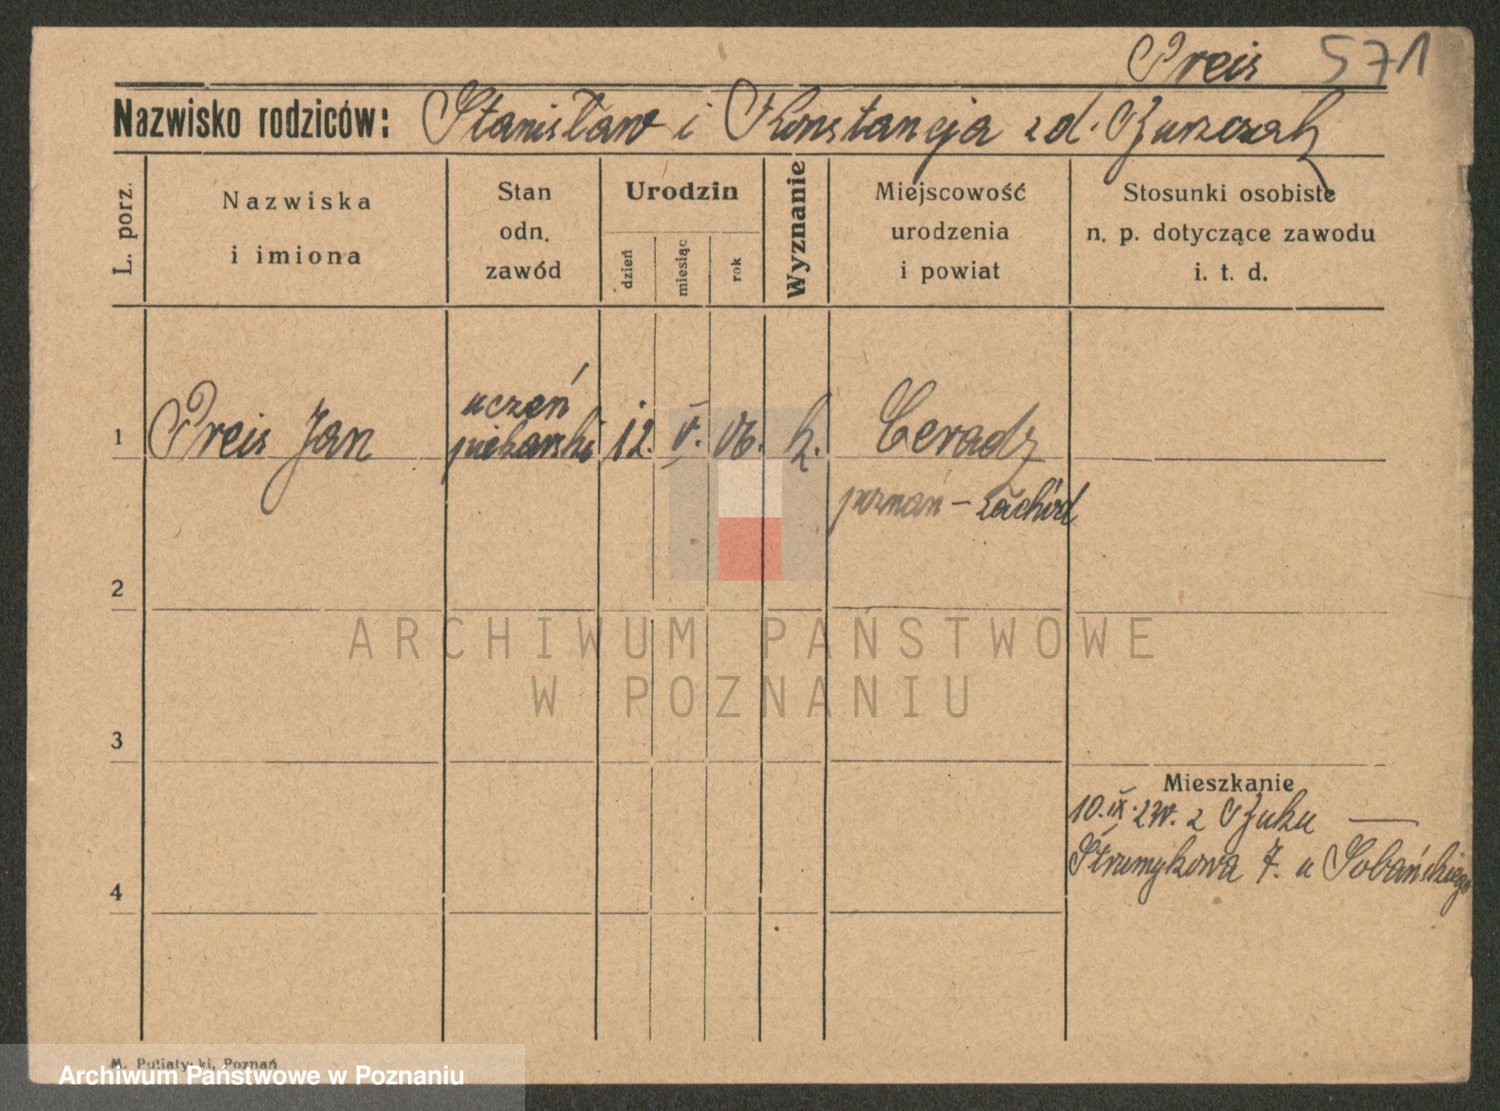 Preis 571
Nazwisko rodziców: Stanisław i Konstancja z d.
L. porz.
Nazwiska
i imiona
Stan
odn.
zawód
Urodzin
dzień
miesiąc
rok
Wyznanie
Miejscowość
urodzenia
i powiat
Stosunki osobiste
n. p. dotyczące zawodu
i. t. d.
1 Preis Jan uczeń piekarski 12. V. 06. k. Ceradz
poznań - zachód
2
ARCHIWUM PAŃSTWOWE
W POZNANIU
3
Mieszkanie
10.IX. z Buku —
4
Strumykowa 7. u Sobańskiego
Poznań
Archiwum Państwowe w Poznaniu